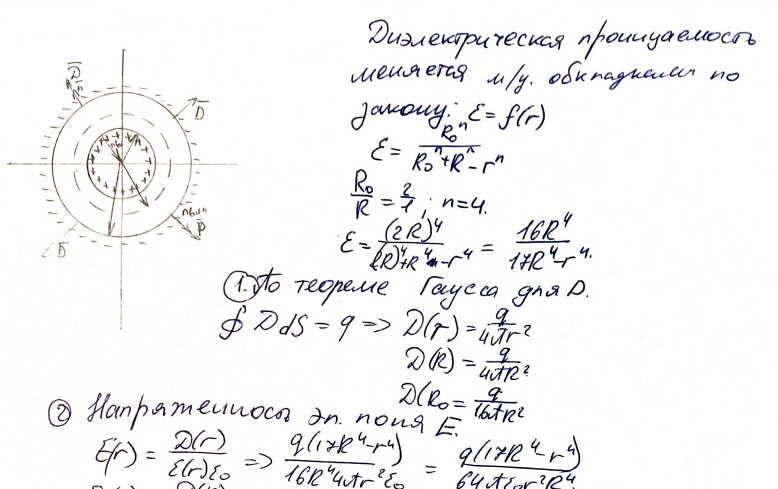 Диэлектрическая проницаемость
меняется м/у. обкладками по
закону: ε = f(r)
ε = R₀ⁿ / (R₀ⁿ + Rⁿ - rⁿ)
R₀/R = 2/1 ; n=4.
ε = (2R)⁴ / ((2R)⁴+R⁴-r⁴) = 16R⁴ / (17R⁴-r⁴).
1. По теореме Гаусса для D.
∮ D dS = q => D(r) = q / 4πr²
D(R) = q / 4πR²
D(R₀ = q / 16πR²
2 Напряженность эл. поля E.
E(r) = D(r) / ε(r)ε₀ => q(17R⁴-r⁴) / 16R⁴4πr²ε₀ = q(17R⁴-r⁴) / 64πε₀r²R⁴
D̅
n̅
D̅
D̅
D̅